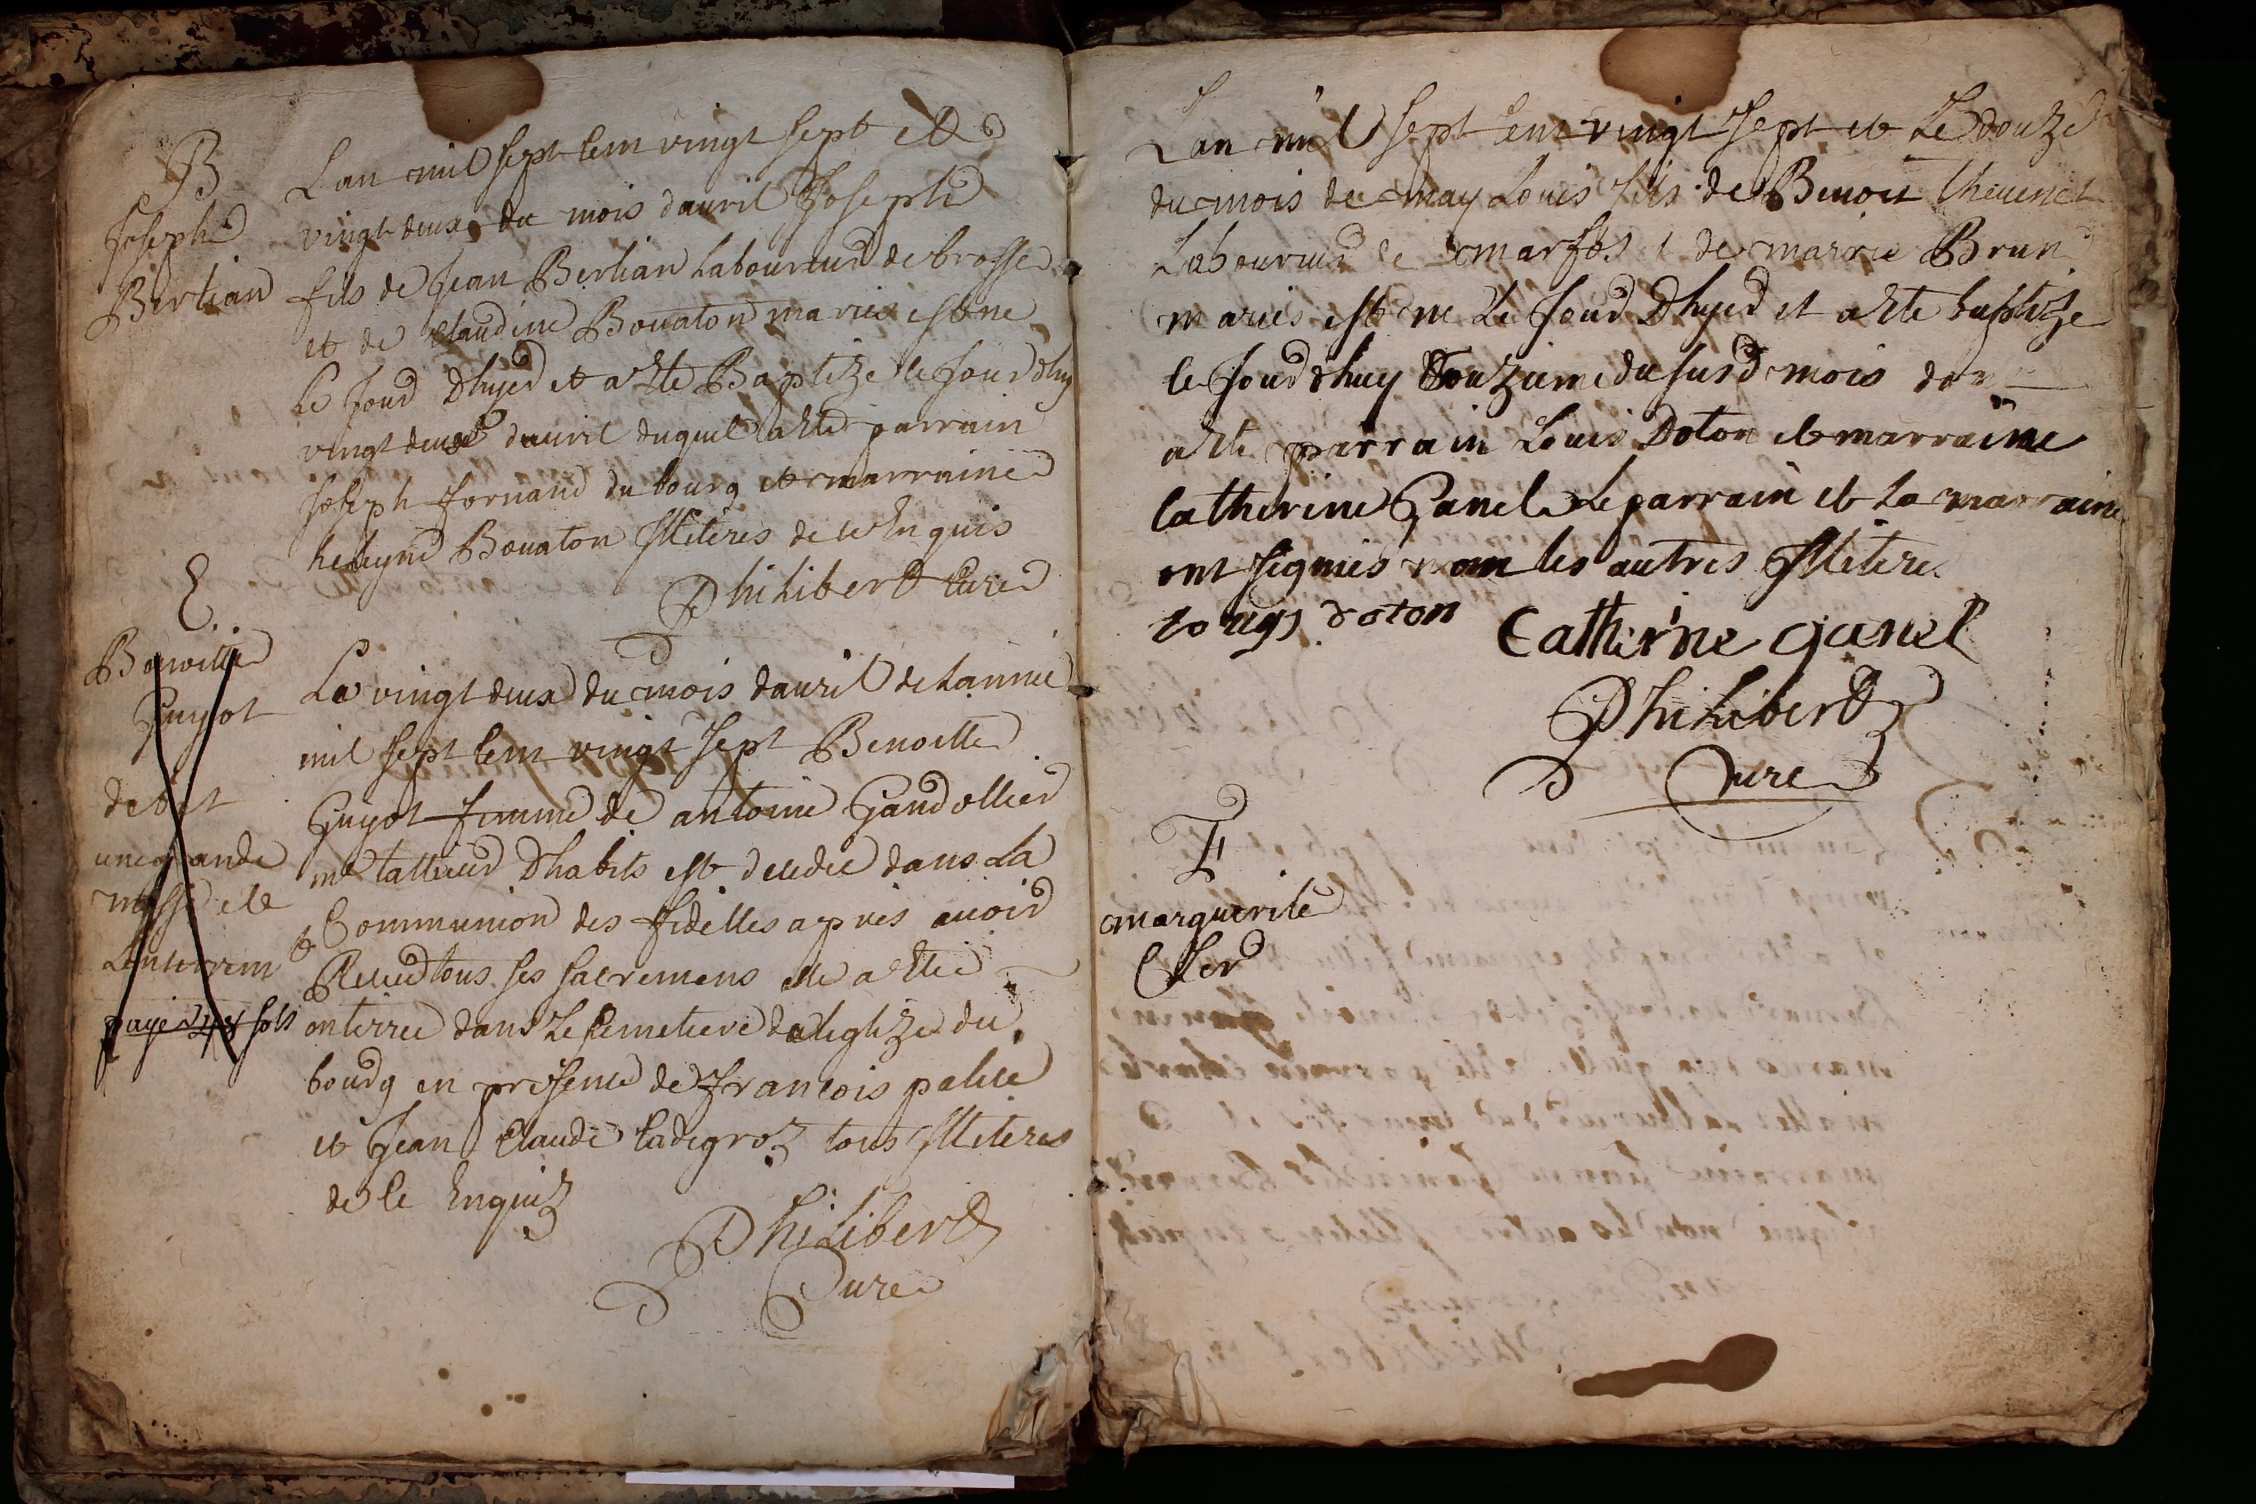 B
Joseph
Bertian
Lan mil sept cent vingt sept et
vingt deux du mois dauril Joseph
fils de Jean Bertian laboureur de brosse
et de Claudine Bouaton maries est ne
le jour dhyer et a este Baptize le jourdhuy
vingt deux dauril duquel a este parrain
Joseph fornand du bourg et marraine
heleyne Bouaton Illiteres de ce Enquis
Philibert Cure
E
Benoitte
Guyot
debet
une grande
messe et
Lenterremt
paye 48 sols
Le vingt deux du mois dauril de Lannee
mil sept cent vingt sept Benoitte
Guyot femme de antoine Gandollier
me tallieur Dhabits est decedee dans La
Communion des fidelles apres auoir
Receu tous ses sacremens elle a este
enterree dans Le Cemetiere de leglize du
bourg en presence de francois palue
et Jean Claude Cadegroz tous Illiteres
de ce Enquiz
Philibert
Cure
Lan mil sept cent vingt sept et Le douze
du mois de may Louis fils de Benoit theuenet
Laboureur de marfos et de marrie Brun
maries est ne Le jour Dhyer et a este baptize
le jourdhuy Douzieme du susd mois don
a este parrain Louis Doton et marraine
Catherine Ganel Le parrain et La marraine
ont signies non les autres Illitere
lougs doton
Catherine ganel
Philibert
Cure
E
marguerite
Cler